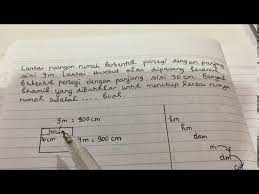 Lantai ruangan rumah berbentuk persegi dengan panjang
sisi 9m. Lantai tersebut akan dipasang keramik
berbentuk persegi dengan panjang sisi 30 cm. Banyak
keramik yang dibutuhkan untuk menutup lantai ruangan
rumah adalah .... buah.
9m = 900 cm
km
hm
dam
m
9m = 900 cm